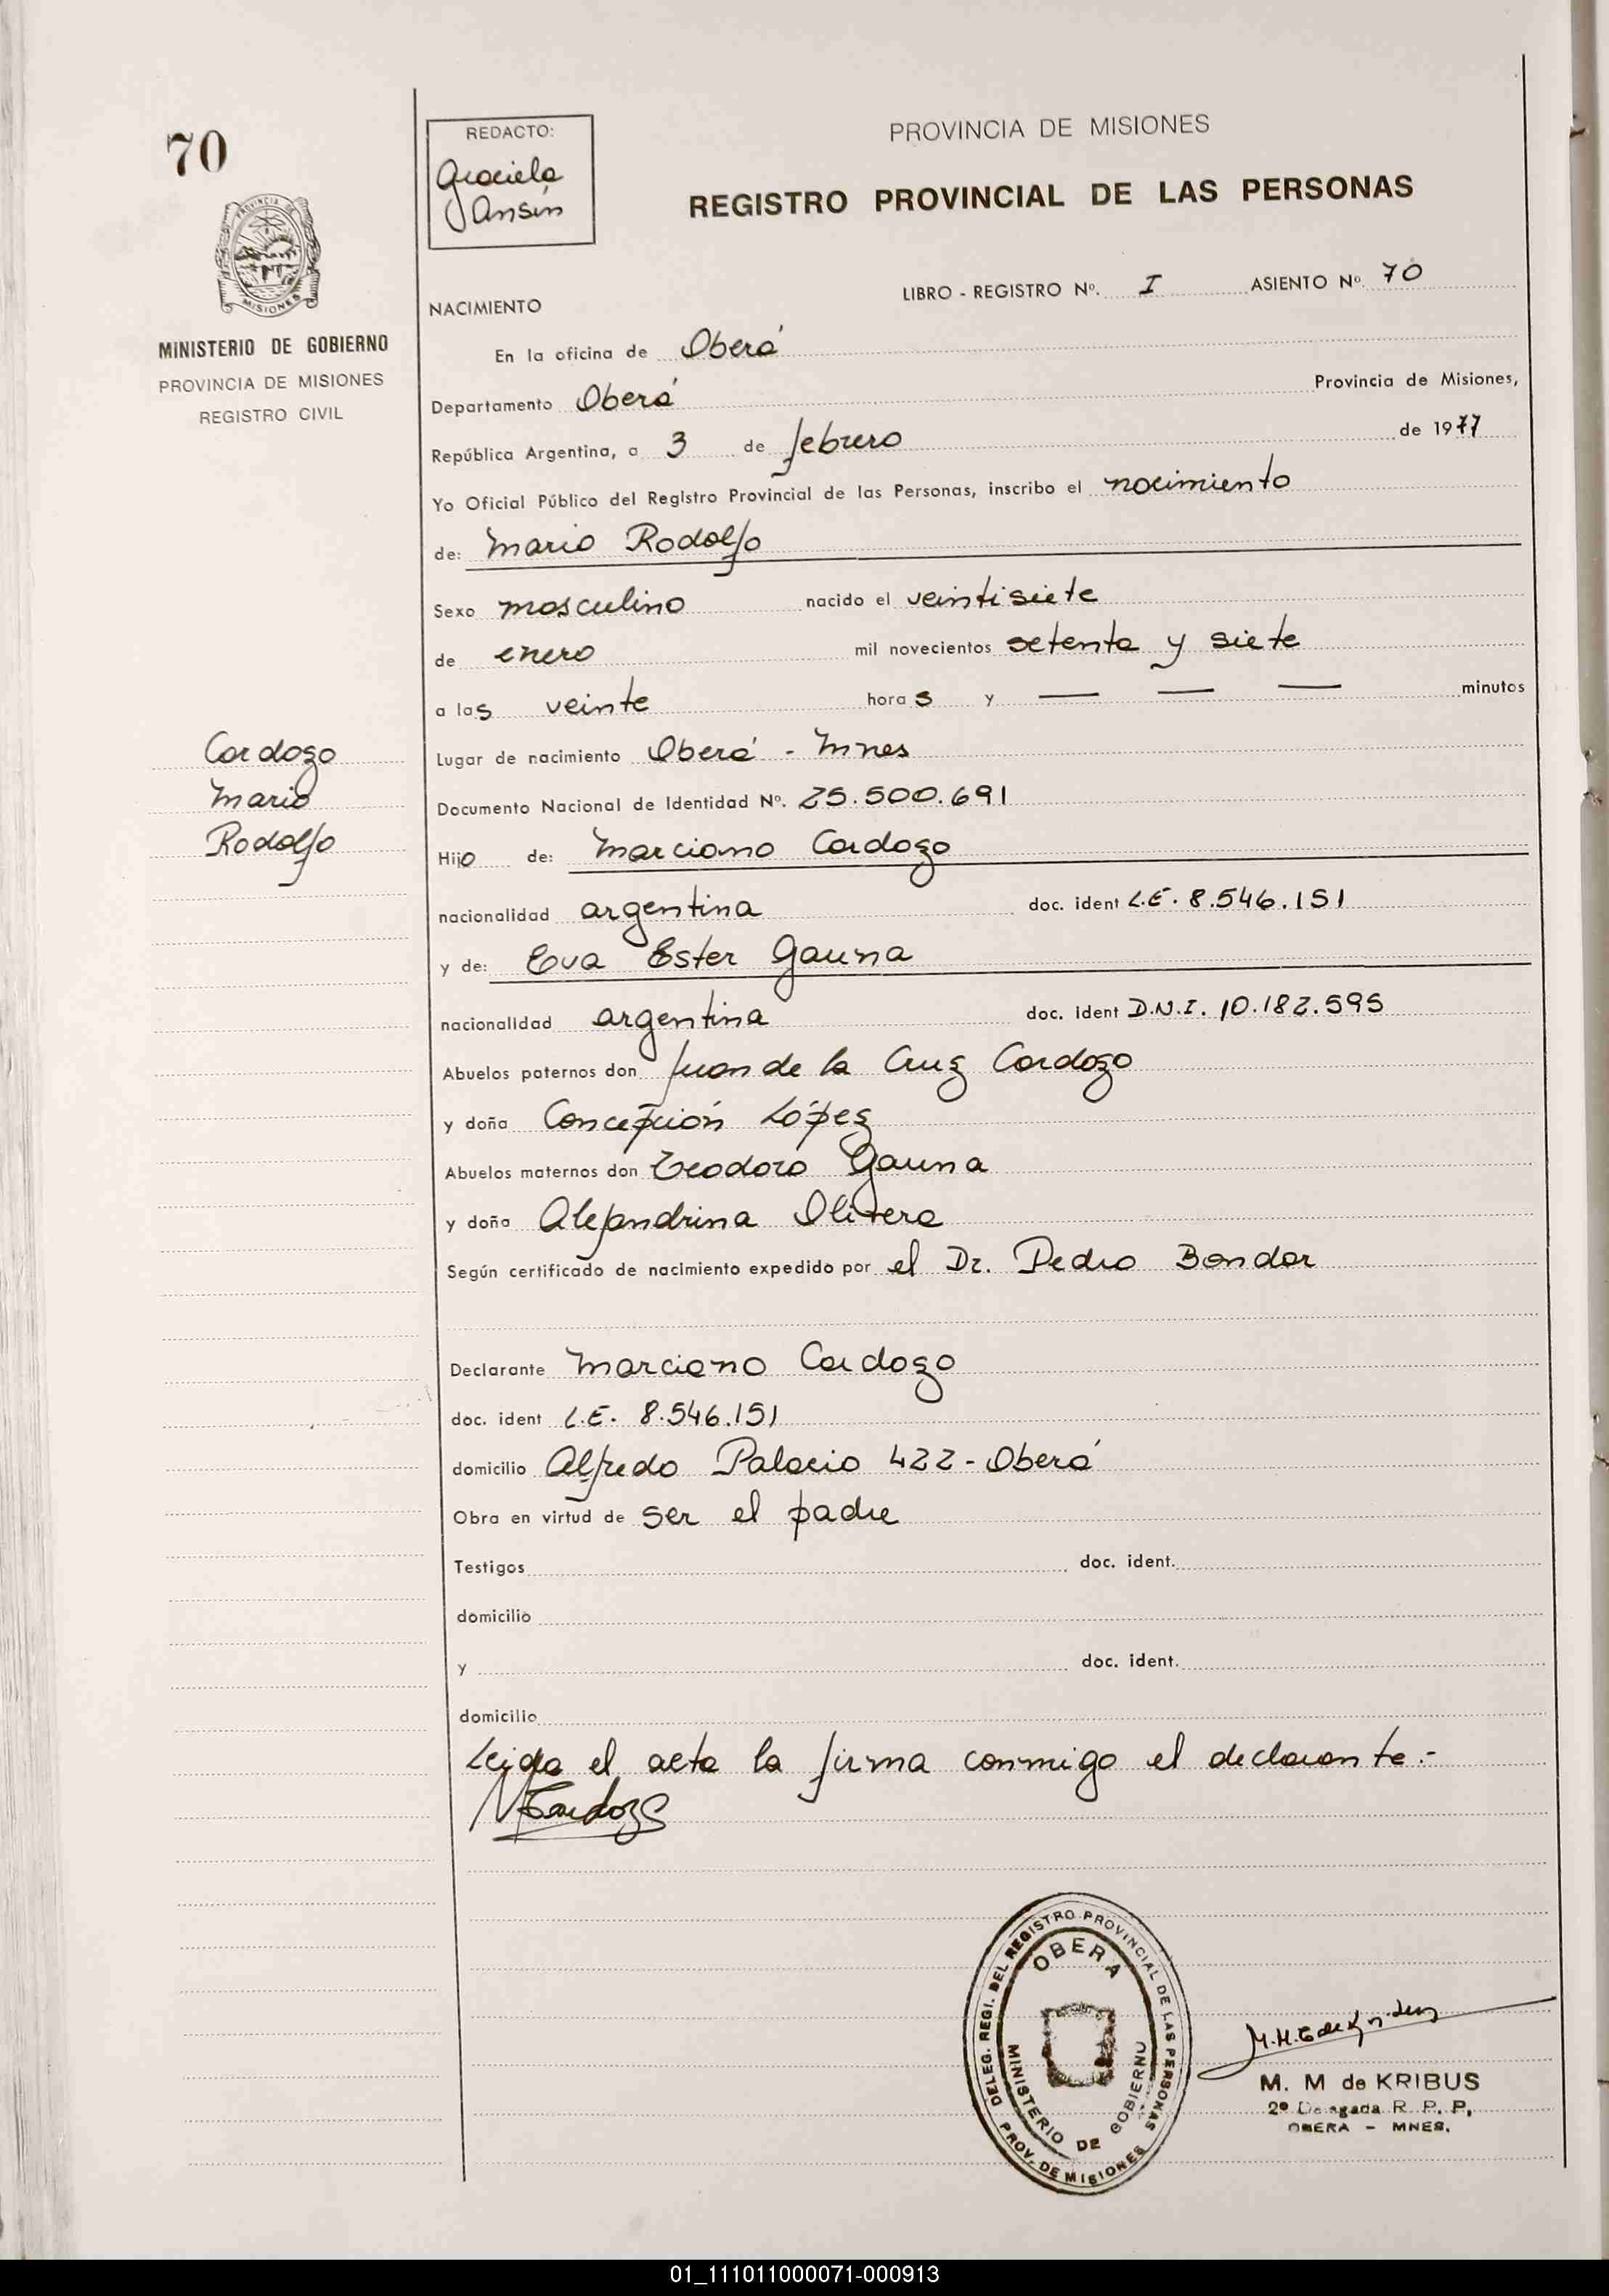 70
PROVINCIA DE
MISIONES
MINISTERIO DE GOBIERNO
PROVINCIA DE MISIONES
REGISTRO CIVIL
REDACTO:
Graciela
Jansin
PROVINCIA DE MISIONES
REGISTRO PROVINCIAL DE LAS PERSONAS
LIBRO - REGISTRO Nº. I ASIENTO Nº. 70
NACIMIENTO
En la oficina de Oberá
Departamento Oberá Provincia de Misiones,
República Argentina, a 3 de febrero de 1977
Yo Oficial Público del Registro Provincial de las Personas, inscribo el nacimiento
de: Mario Rodolfo
Sexo masculino nacido el veintisiete
de enero mil novecientos setenta y siete
a las veinte horas y — — — minutos
Cardozo
Mario
Rodolfo
Lugar de nacimiento Oberá - Mnes
Documento Nacional de Identidad Nº. 25.500.691
Hijo de: Marciano Cardozo
nacionalidad argentina doc. ident L.E. 8.546.151
y de: Eva Ester Gauna
nacionalidad argentina doc. ident D.N.I. 10.182.595
Abuelos paternos don Juan de la Cruz Cardozo
y doña Concepción López
Abuelos maternos don Teodoro Gauna
y doña Alejandrina Olivera
Según certificado de nacimiento expedido por el Dr. Pedro Bondar
Declarante Marciano Cardozo
doc. ident L.E. 8.546.151
domicilio Alfredo Palacio 422 - Oberá
Obra en virtud de ser el padre
Testigos doc. ident.
domicilio
y doc. ident.
domicilio
Leida el acta la firma conmigo el declarante.-
MCardozo
DELEG. REGI. DEL REGISTRO PROVINCIAL DE LAS PERSONAS
OBERA
MINISTERIO DE GOBIERNO
PROV. DE MISIONES
M. M de KRIBUS
2º Delegada R. P. P.
OBERA - MNES.
01_111011000071-000913